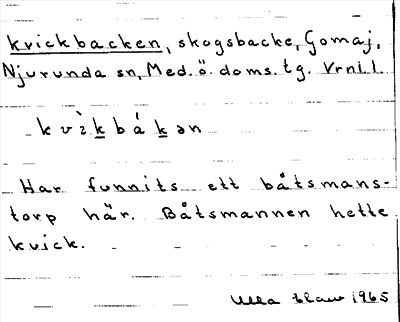 kvickbacken, skogsbacke, Gomaj,
Njurunda sn, Med. ö. doms. tg. Vrnl.
kvi̇̀kbákən
Har funnits ett båtsmans-
torp här. Båtsmannen hette
kvick.
Ulla 1965